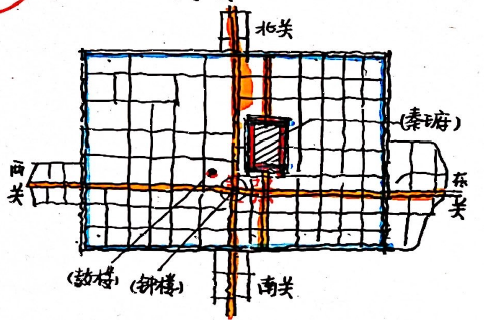 北关
(秦王府)
西
关
东
关
(鼓楼) (钟楼) 南关